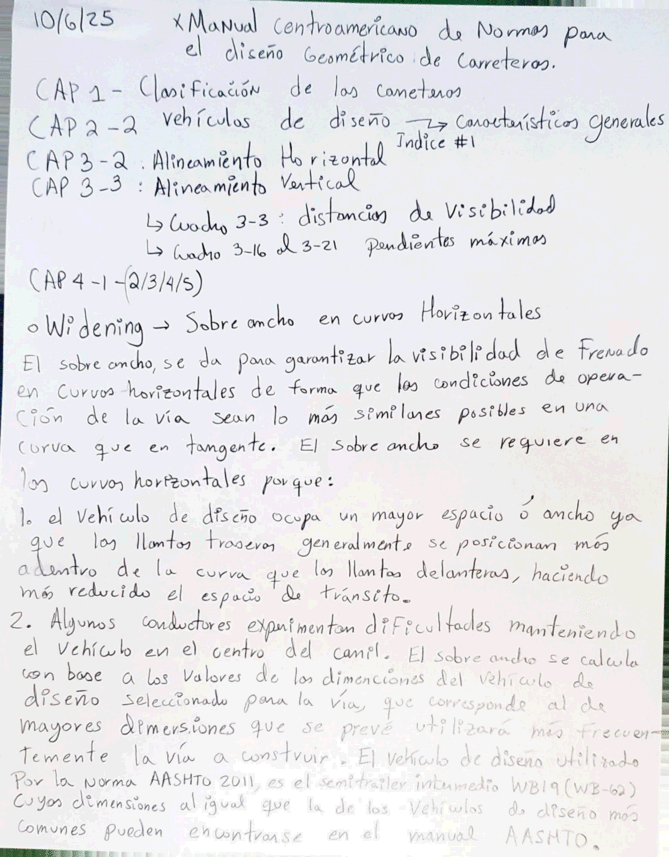 10/6/25 x Manual Centroamericano de Normas para
el diseño Geométrico de Carreteras.
CAP 1 - Clasificación de las carreteras
CAP 2-2 vehículos de diseño ↳ Características generales
Indice #1
CAP 3-2 : Alineamiento Horizontal
CAP 3-3 : Alineamiento Vertical
↳ Cuadro 3-3 : distancias de Visibilidad
↳ Cuadro 3-16 al 3-21 pendientes máximas
CAP 4-1-(2/3/4/5)
o Widening → Sobre ancho en curvas Horizontales
El sobre ancho, se da para garantizar la visibilidad de Frenado
en curvas horizontales de forma que las condiciones de opera-
ción de la vía sean lo más similares posibles en una
curva que en tangente. El sobre ancho se requiere en
las curvas horizontales porque:
1. el vehículo de diseño ocupa un mayor espacio ó ancho ya
que las llantas traseras generalmente se posicionan más
adentro de la curva que las llantas delanteras, haciendo
más reducido el espacio de tránsito.
2. Algunos conductores experimentan dificultades manteniendo
el vehículo en el centro del carril. El sobre ancho se calcula
con base a los valores de las dimenciones del vehículo de
diseño seleccionado para la vía, que corresponde al de
mayores dimensiones que se prevé utilizará más frecuen-
temente la vía a construir. El vehículo de diseño utilizado
Por la norma AASHTO 2011, es el semitrailer intermedio WB19 (WB-62)
Cuyas dimensiones al igual que la de los vehículos de diseño más
comunes pueden encontrarse en el manual AASHTO.